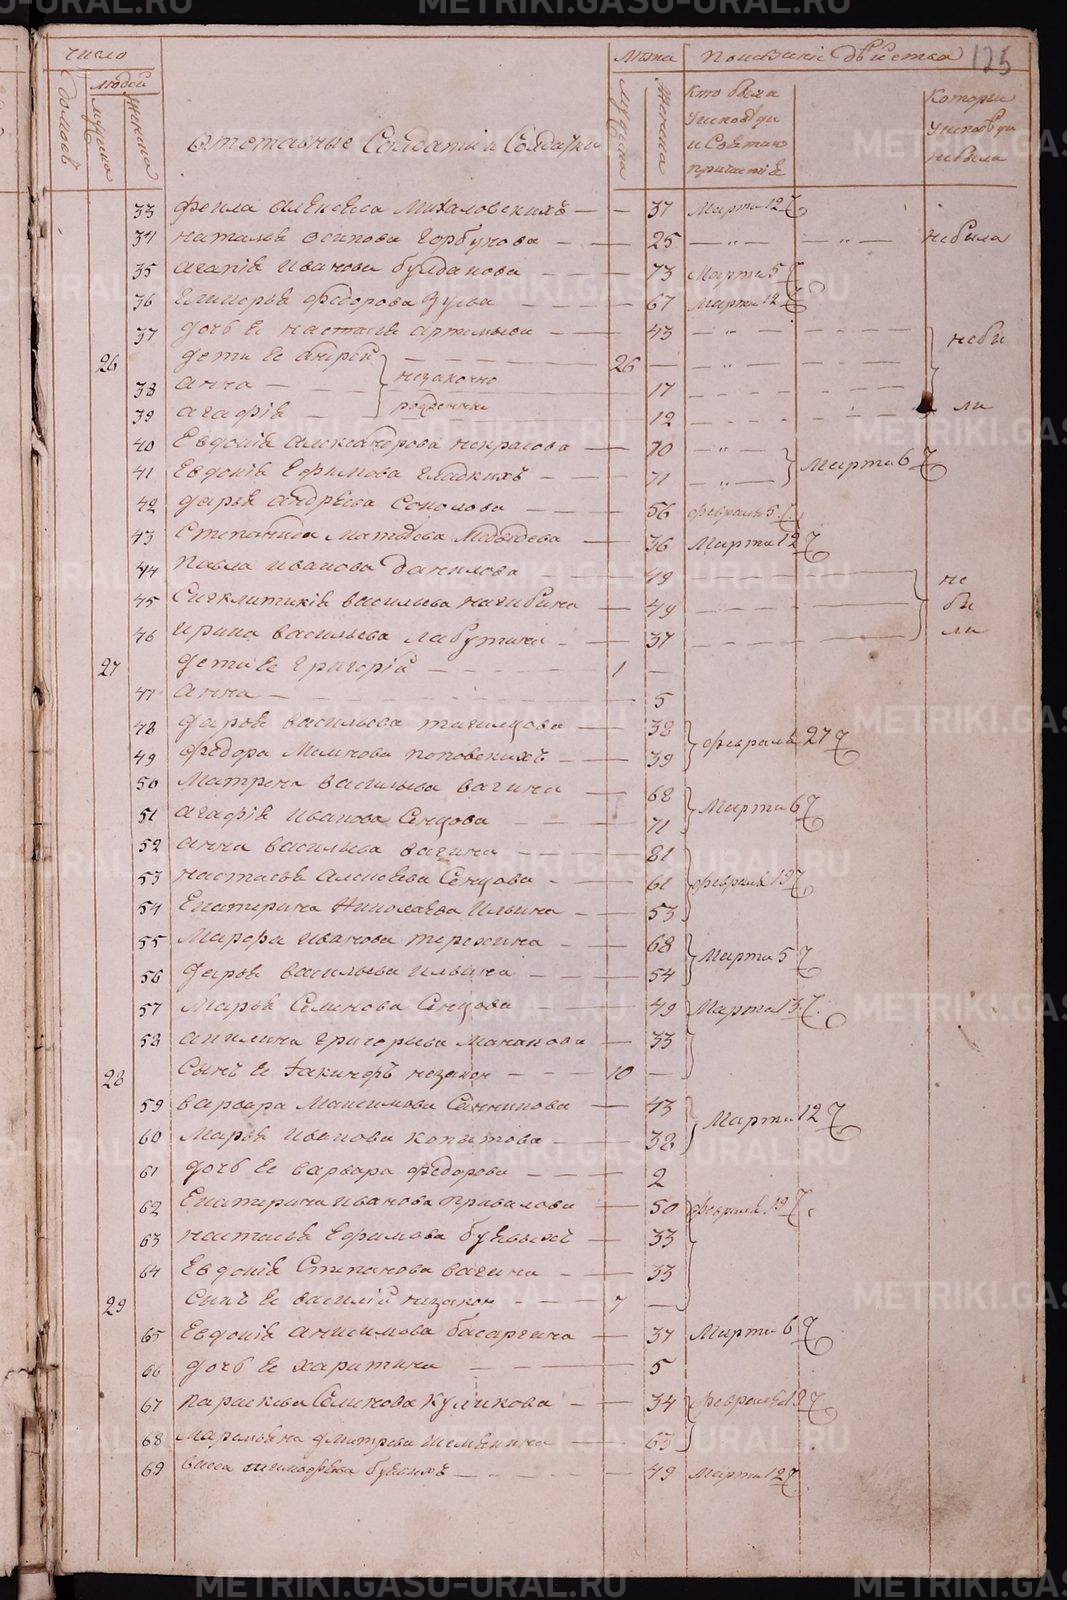 число
домовъ
людей
мущинъ
женскъ
отставные Солдаты и Солдатки
лѣта
Мужска
Женска
показаніе дѣйства
125
Кто были
у исповѣди
и Святаго
причастія
Которые
у исповѣди
небыли
33 Фекла Алексѣева Михаловскихъ — — 37 Марта 12
34 Наталья Осипова Горбунова — — 25 — „ — — „ — небыла
35 Агапія Иванова Булданова — — 73 Марта 5
36 Гликерья Федорова Зуева — — 67 Марта 12
37 дочь Ее Настасья Артемьева — — 43 — „ —
26 дети Ее Андрей незаконно 26 — „ — небы
38 Анна — рожденны 17
39 Агафія — 12 ли
40 Евдокія Александрова Некрасова — 70 — „ —
41 Евдокія Ефимова Гладкихъ — — 71 — „ — Марта 6
42 Дарья Андрѣева Соколова — — 56 Февраля 5
43 Степанида Матвѣева Медвѣдева — 36 Марта 12
44 Павла Иванова Данилова — — 49 не
45 Сигклитикія Васильева Нагибина — 49 бы
46 Ирина Васильева Лабутина — — 37 ли
27 дети Ее Григорій — — 1 —
47 Анна — — 5
48 Дарья Васильева Тагильцова — — 38
49 Федора Поповскихъ — — 39 Февраля 27
50 Матрена Васильева Вагина — 68
51 Агафія Иванова Сенцова — — 71 Марта 6
52 Анна Васильева Вагина — — 81
53 Настасья Алексѣева Сенцова — — 61 Февраля 19
54 Екатерина Николаева Ильина — — 53
55 Марфа Иванова Терехина — — 68
56 Дарья Васильева Ильина — — 54 Марта 5
57 Марья Семенова Сенцова — — 49 Марта 13
58 Акилина Григорьева Манакова — 33
28 Сынъ Ее Іакинфъ незакон — — 10 —
59 Варвара Максимова Санникова — 43
60 Марья Иванова Копытова — — 38 Марта 12
61 дочь Ее Варвара Федорова — — 2
62 Екатерина Иванова Привалова — 50 Февраля 19
63 Настасья Ефимова — 33
64 Евдокія Степанова Вагина — — 33
29 Сынъ Ее Василій незакон — — 7 —
65 Евдокія Анисимова Басаргина — 37 Марта 6
66 дочь Ее Харитина — — 5
67 Параскева Семенова Куликова — — 34 Февраля 13
68 Маремьяна Дмитрева — 65
69 Васса Тимофѣева — — 49 Марта 12